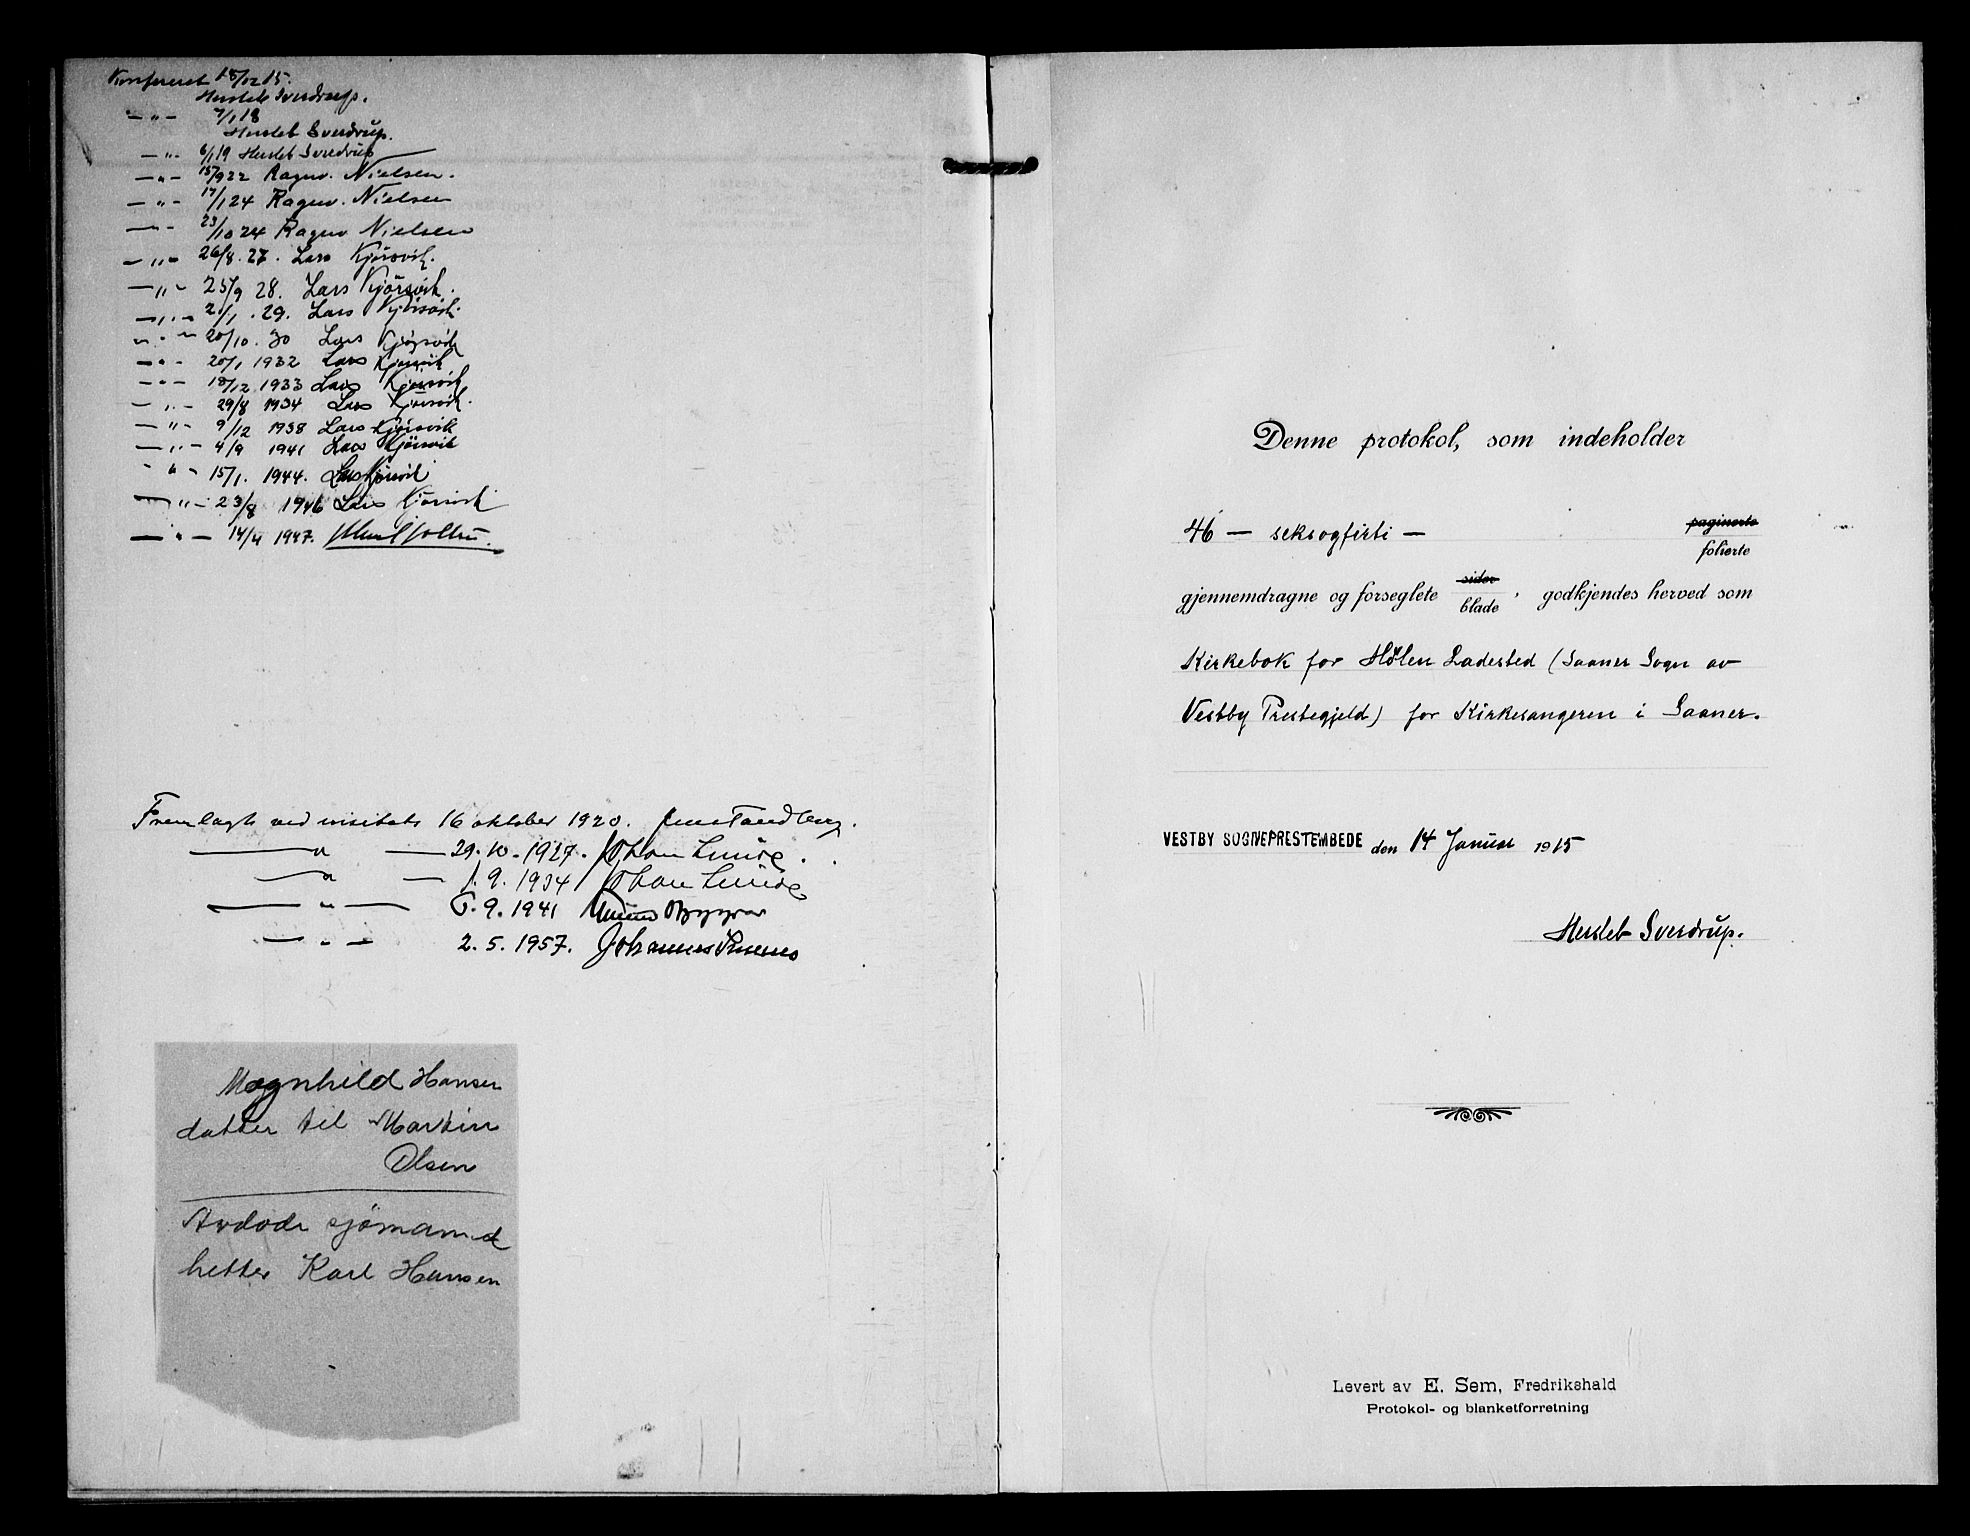 Konfereret 18/12 15.
Hersleb Sverdrup.
— " — 7/1 18
Hersleb Sverdrup.
— " — 6/1 19 Hersleb Sverdrup
— " — 15/9 22 Ragnv. Nielsen.
— " — 17/1 24 Ragnv. Nielsen
— " — 23/10 24 Ragnv Nielsen
— " — 26/8. 27. Lars Kjörsvik.
— " — 25/9 28. Lars Kjörsvik.
— " — 2/1. 29. Lars Kjörsvik.
— " — 20/10. 30 Lars Kjörsvik
— " — 20/1 1932 Lars Kjörsvik
— " — 18/12 1933 Lars Kjörsvik
— " — 29/8 1934 Lars Kjörsvik.
— " — 9/12 1938 Lars Kjörsvik
— " — 4/9 1941 Lars Kjörsvik
— " — 15/1. 1944. Lars Kjörsvik
— " — 23/8 1946 Lars Kjörsvik
— " — 14/4 1947.
Fremlagt ved visitats 16 oktober 1920. Jens Tandberg.
— " — 29.10.1927. Johan Lunde.
— " — 1.9.1934 Johan Lunde
— " — 5.9.1941
— " — 2.5.1957. Johannes Smemo
Magnhild Hansen
datter til Martin
Olsen
Avdöde sjömand
hetter Karl Hansen
Denne protokol, som indeholder
46 — seksogfirti — paginerte
folierte
gjennemdragne og forseglete sider
blade, godkjendes herved som
Kirkebok for Hölen Ladested (Saaner Sogn av
Vestby Prestegjeld) for Kirkesangeren i Saaner.
VESTBY SOGNEPRESTEMBEDE den 14 Januar 1915
Hersleb Sverdrup.
Levert av E. Sem, Fredrikshald
Protokol- og blanketforretning